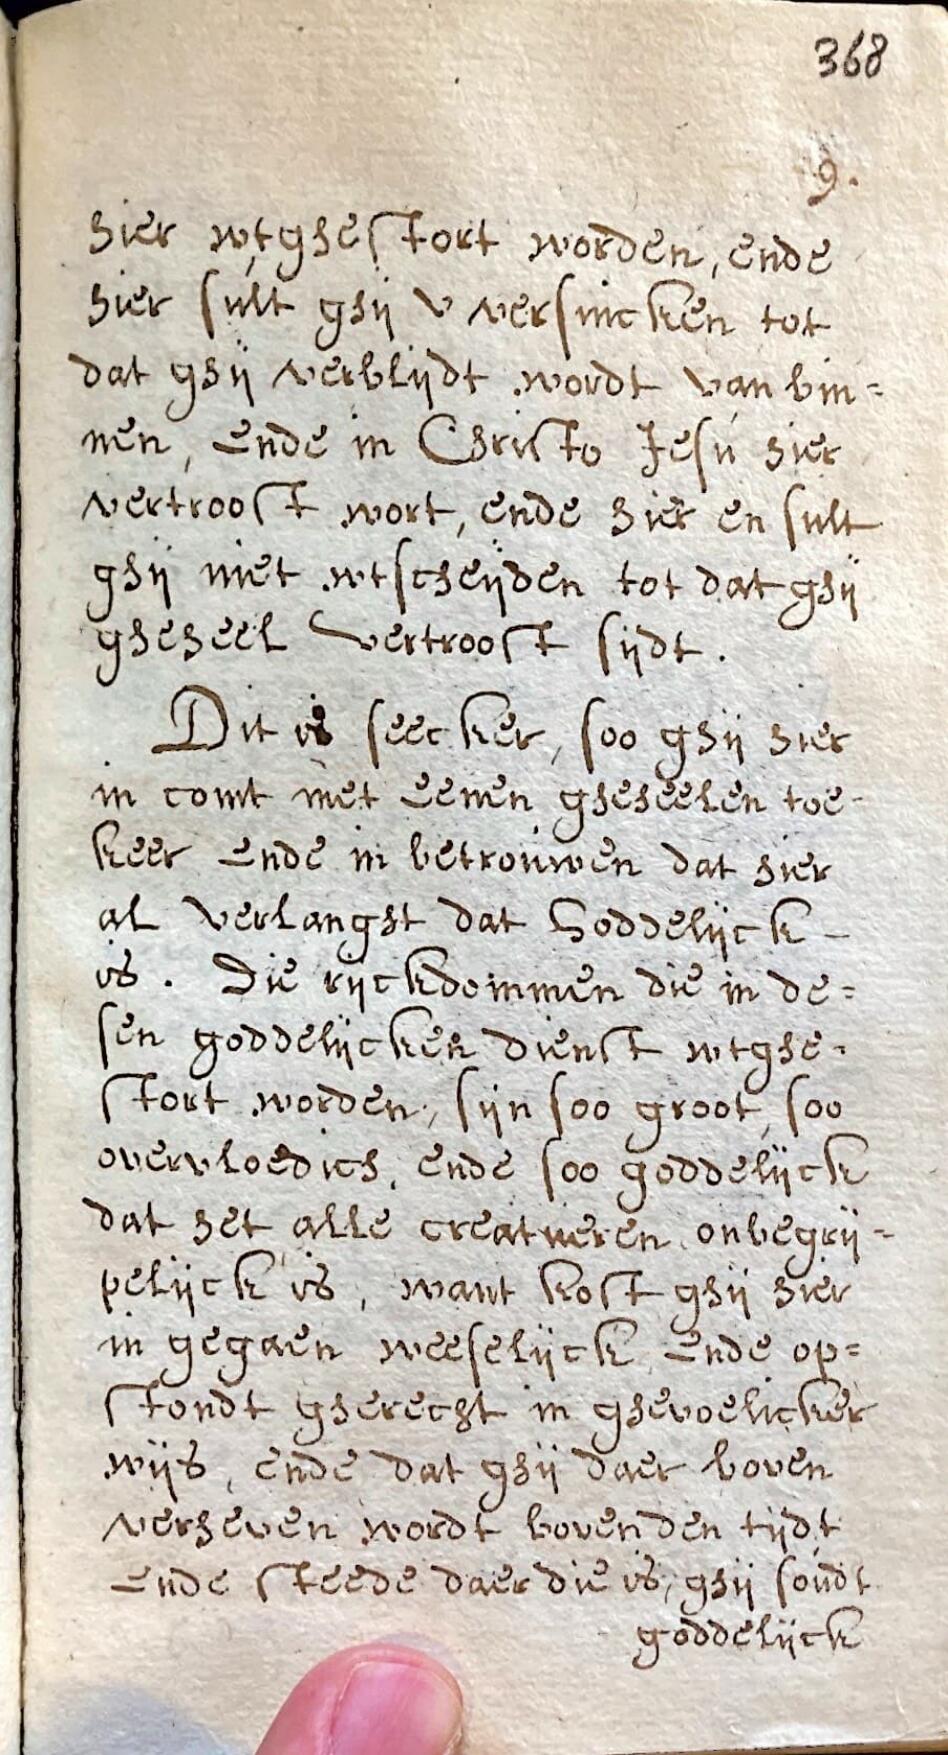 368
9.
hier wtghestort worden, ende
hier sult ghij v versincken tot
dat ghij verblijdt wordt van bin=
nen, ende in Christo Jesu hier
vertroost wort, ende hier en sult
ghij niet wtscheijden tot dat ghij
gheheel vertroost sijdt.
Dit is seecker, soo ghij hier
in comt met eenen gheheelen toe-
keer ende in betrouwen dat hier
al verlanghst dat Goddelijck -
is. Die rijckdommen die in de=
sen goddelijcken dienst wtghe=
stort worden, sijn soo groot, soo
overvloedich, ende soo goddelijck
dat het alle creatueren onbegrij=
pelijck is, want kost ghij hier
in gegaen weeselijck ende op=
stondt gherecht in ghevoelicker
wijs, ende dat ghij daer boven
verheven wordt boven den tijdt
ende steede daer die is, ghij soudt
goddelijck